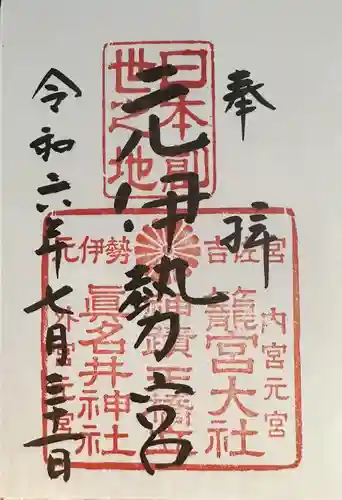 奉拝
日本創
世之地
元伊勢之宮
吉佐宮
元伊勢
内宮元宮
籠宮大社
眞名井神社
令和六年七月三十一日